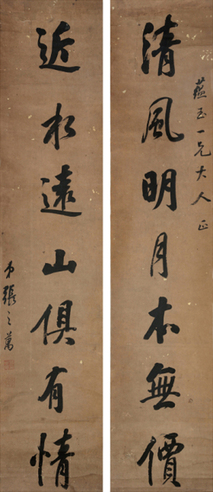 清風明月本無價
蘊玉一兄大人正
近水遠山俱有情
弟張之萬